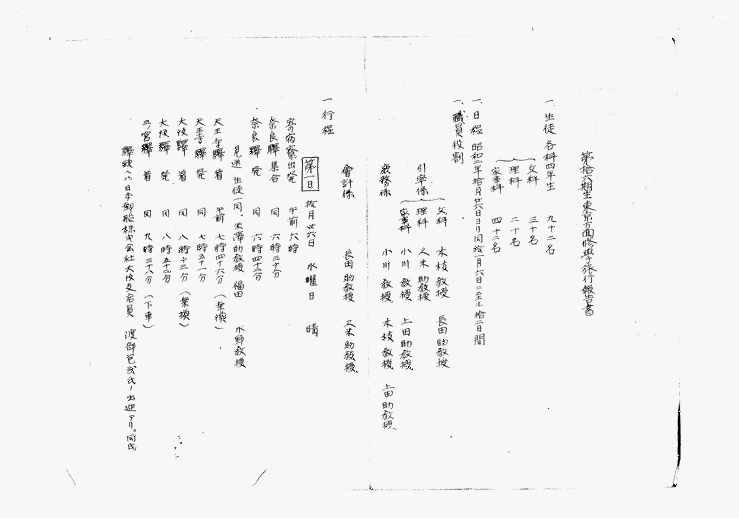 第拾六期生東京方面修学旅行報告書
一、生徒 各科四年生 九十二名
文科 三十名
理科 二十名
家事科 四十二名
一、日程 昭和二年拾月廿六日ヨリ同拾一月六日ニ至ル拾二日間
一、職員役割
引率係
文科 木枝教授 長田助教授
理科 久米助教授
家事科 小川教授 上田助教授
庶務係 小川教授 木枝教授 上田助教授
会計係 長田助教授 久米助教授
一 行程
第一日 拾月廿六日 水曜日 晴
寄宿寮出発 午前 六時
奈良驛集合 同 六時三十分
奈良驛発 同 六時四十二分
見送 生徒一同、米澤助教授 福田 水野教授
天王寺驛着 午前 七時四十六分(乗換)
天王寺驛発 同 七時五十一分
大阪驛着 同 八時十三分(乗換)
大阪驛発 同 八時五十二分
三ノ宮驛着 同 九時三十八分(下車)
驛頭ニハ日本郵船株式会社大阪支店員 渡部 氏ノ出迎アリ。同氏